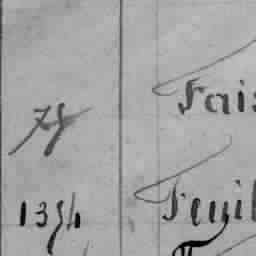 78 Fais
1394 Feuil